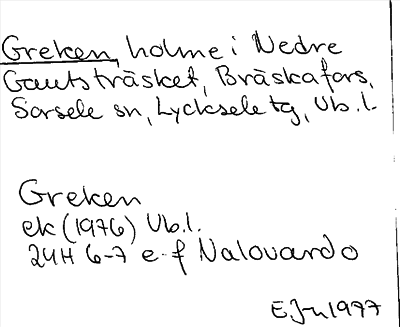 Greken, holme i Nedre
Gautsträsket, Bräskafors,
Sorsele sn, Lycksele tg, Vb.l.
Greken
ek (1976) Vb.l.
24H 6-7 e-f Nalovardo
1977